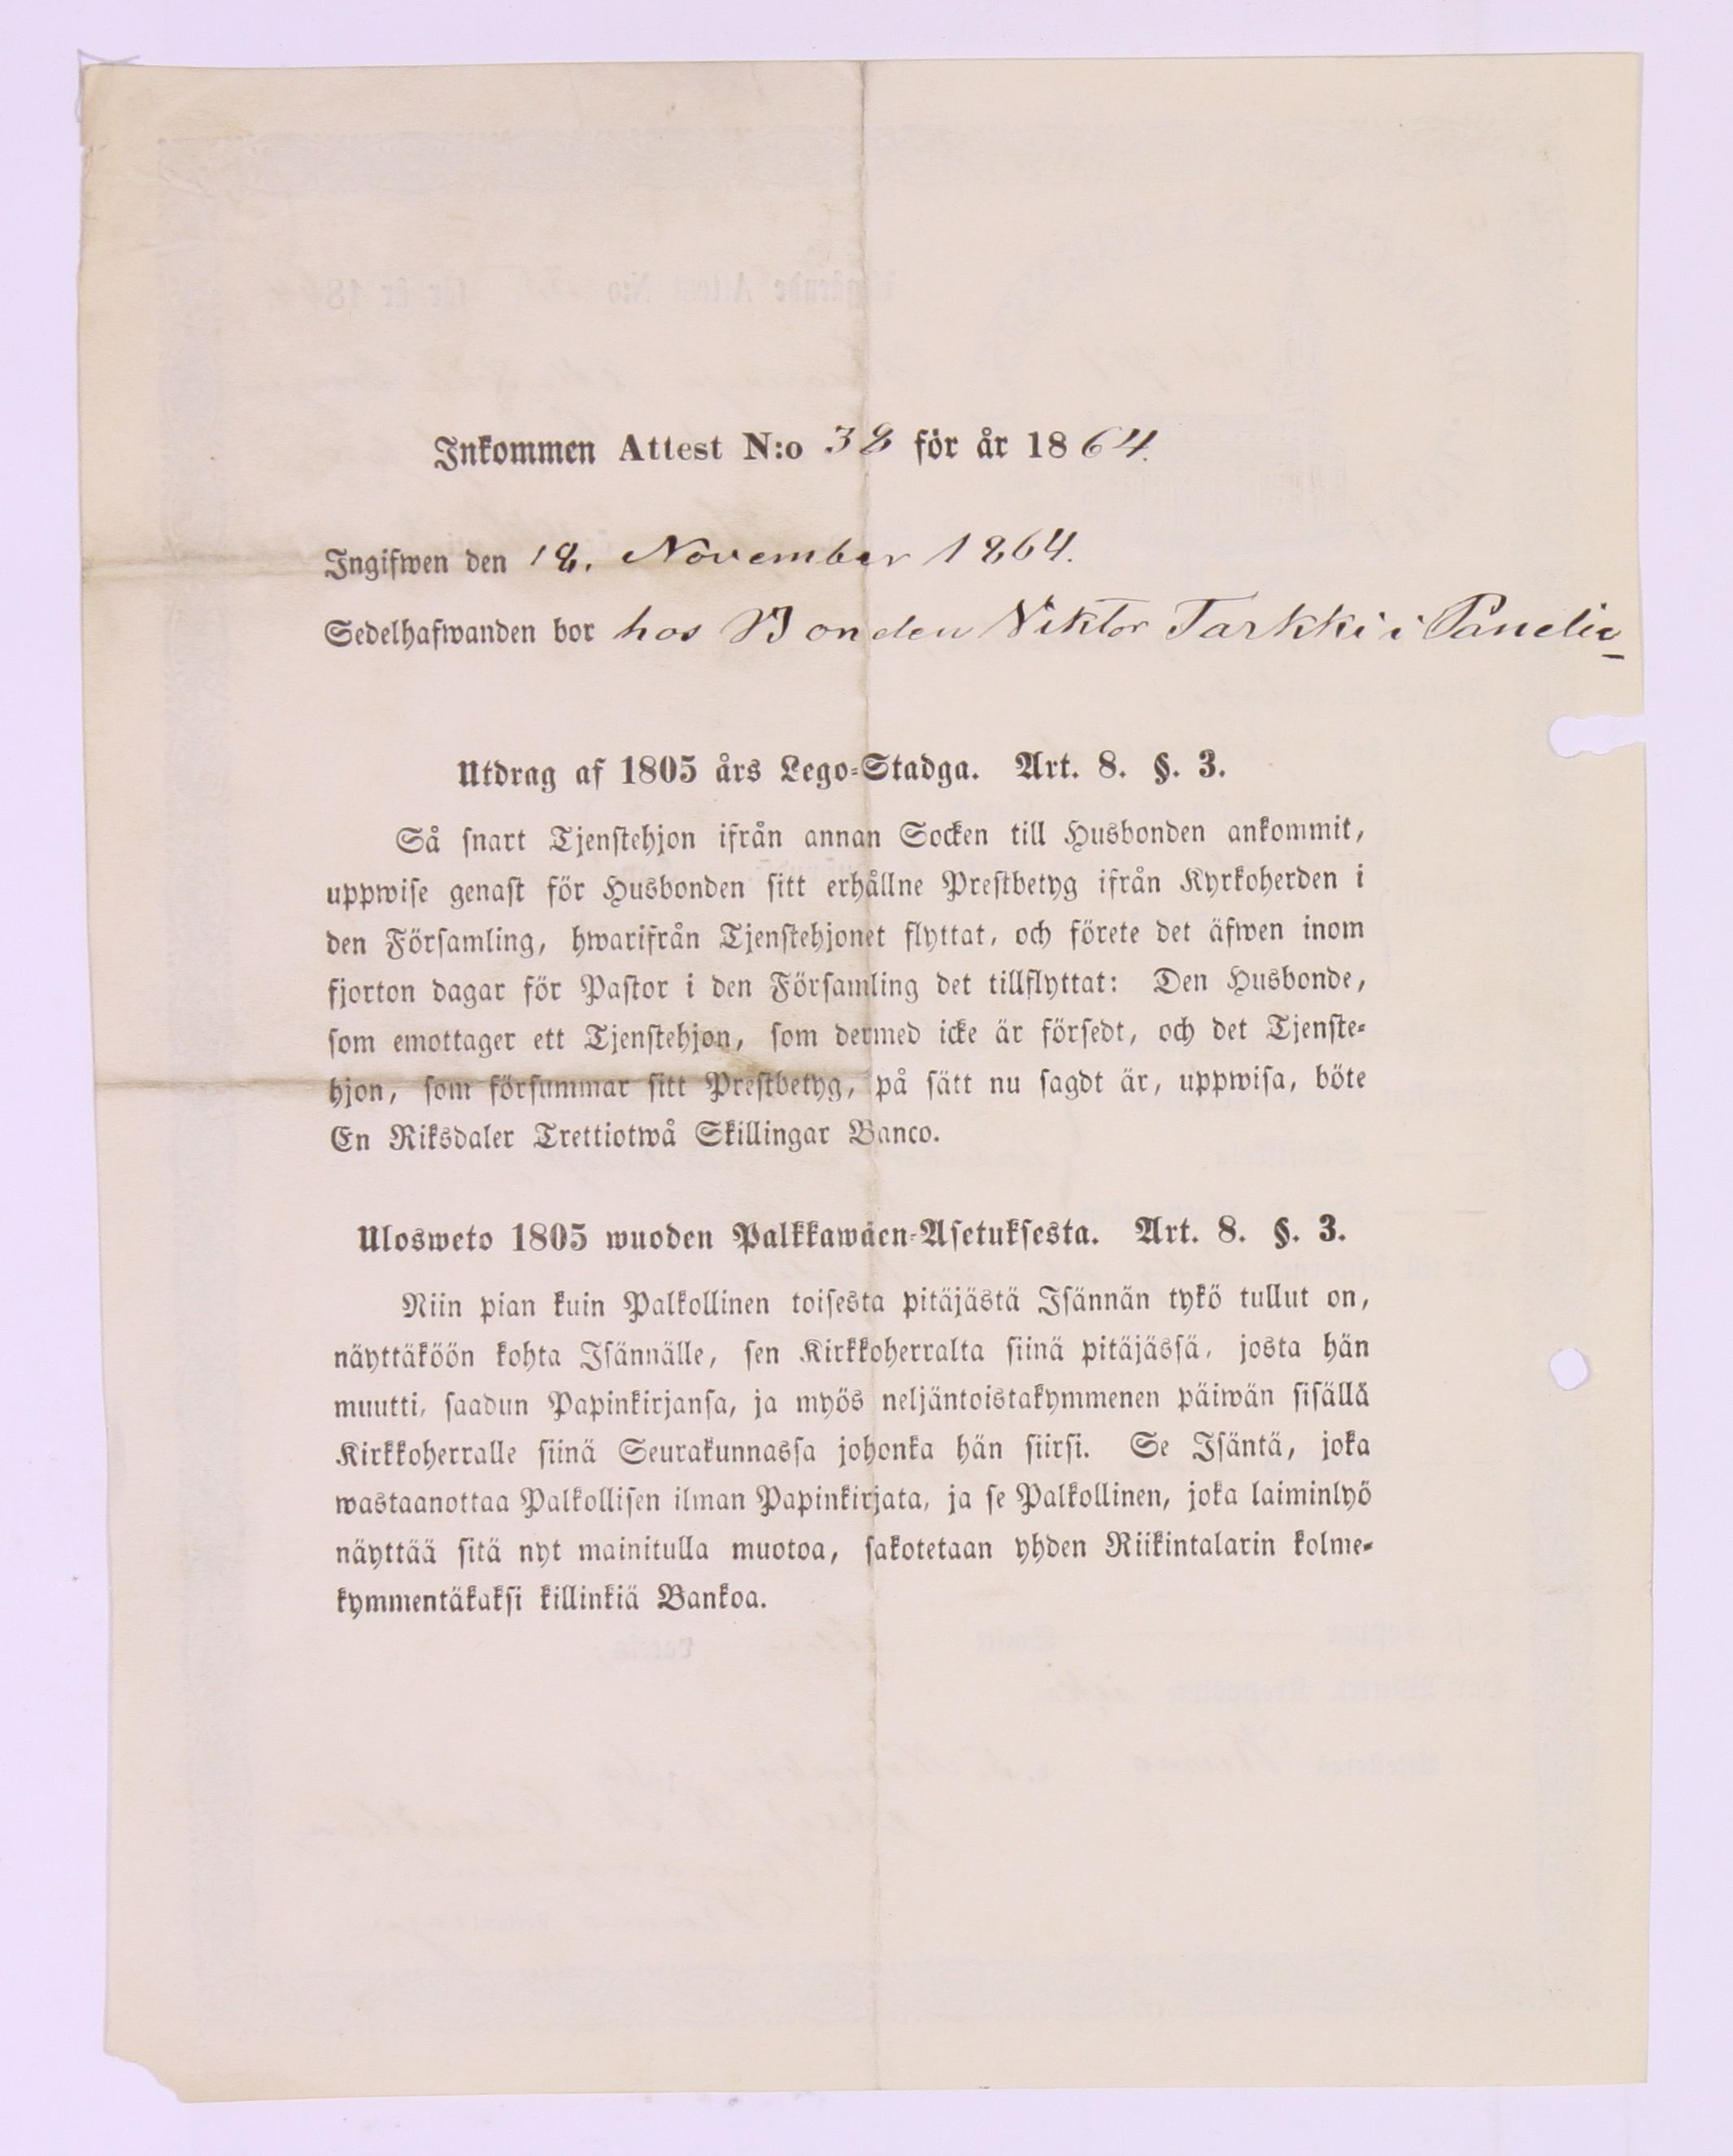 Inkommen Attest N:o 38 för år 1864.
Ingifwen den 18. November 1864.
Sedelhafwanden bor hos Bonden Viktor Tarkki i Panelia
Utdrag af 1805 års Lego-Stadga. Art. 8. §. 3.
Så snart Tjenstehjon ifrån annan Socken till Husbonden ankommit,
uppwise genast för Husbonden sitt erhållne Prestbetyg ifrån Kyrkoherden i
den Församling, hwarifrån Tjenstehjonet flyttat, och förete det äfwen inom
fjorton dagar för Pastor i den Församling det tillflyttat: Den Husbonde,
som emottager ett Tjenstehjon, som dermed icke är försedt, och det Tjenste-
hjon, som försummar sitt Prestbetyg, på sätt nu sagdt är, uppwisa, böte
En Riksdaler Trettiotwå Skillingar Banco.
Ulosweto 1805 wuoden Palkkawäen-Asetuksesta. Art. 8. §. 3.
Niin pian kuin Palkollinen toisesta pitäjästä Isännän tykö tullut on,
näyttäköön kohta Isännälle, sen Kirkkoherralta siinä pitäjässä, josta hän
muutti, saadun Papinkirjansa, ja myös neljäntoistakymmenen päiwän sisällä
Kirkkoherralle siinä Seurakunnassa johonka hän siirsi. Se Isäntä, joka
wastaanottaa Palkollisen ilman Papinkirjata, ja se Palkollinen, joka laiminlyö
näyttää sitä nyt mainitulla muotoa, sakotetaan yhden Riikintalarin kolme-
kymmentäkaksi killinkiä Bankoa.